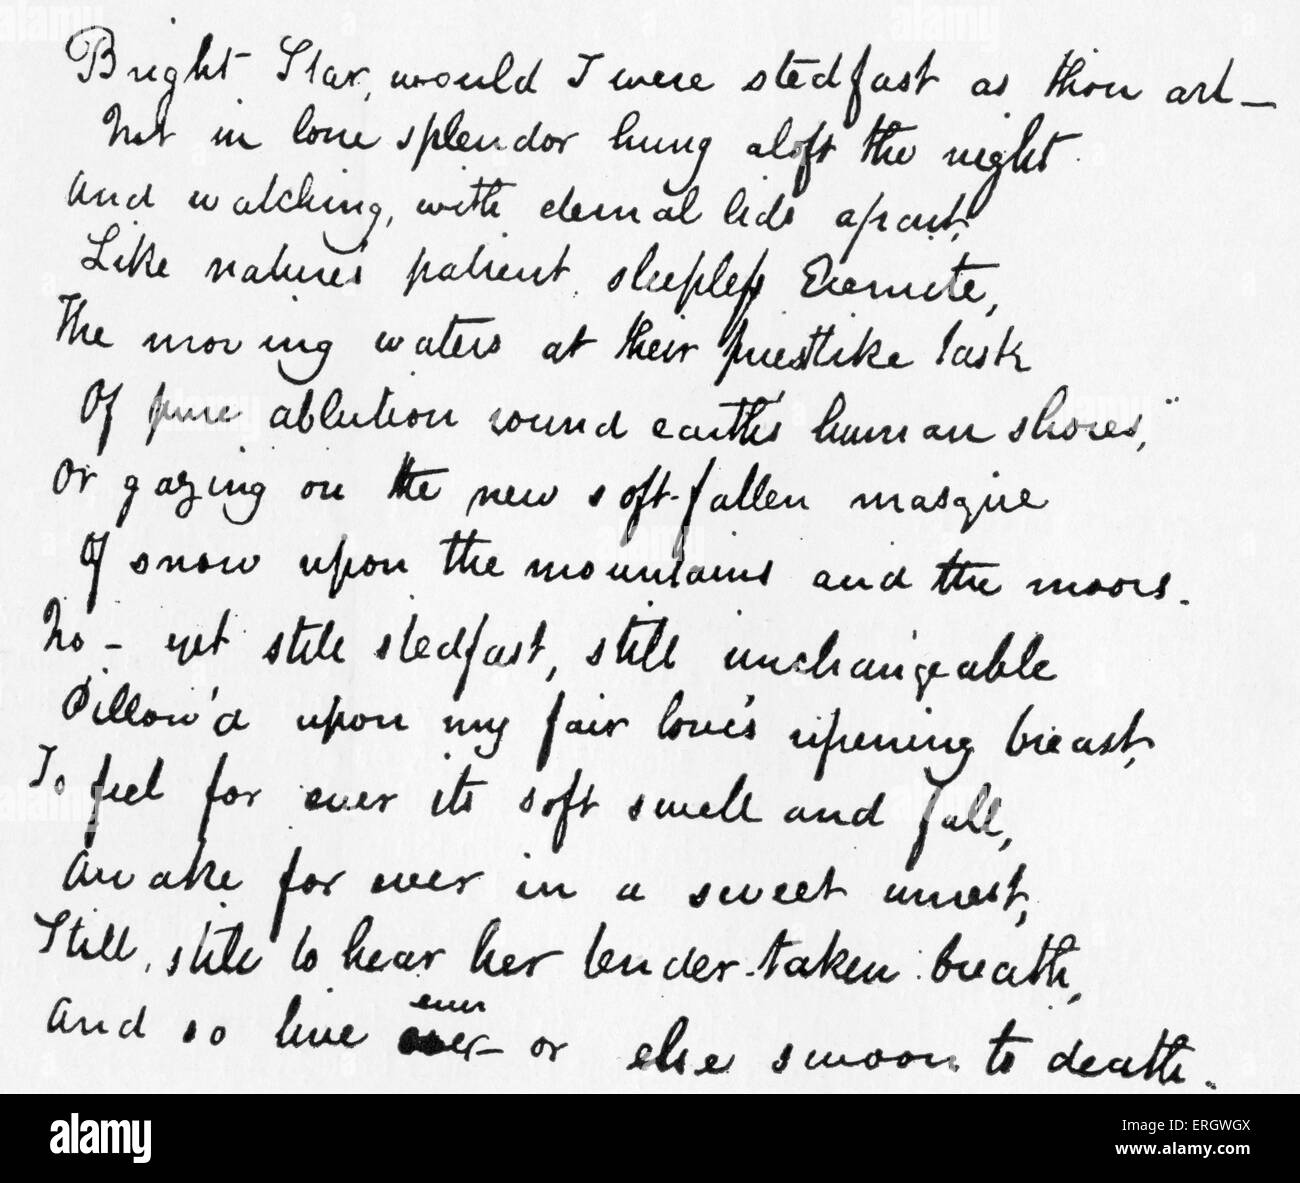 Bright Star, would I were stedfast as thou art—
Not in lone splendor hung aloft the night
And watching, with eternal lids apart,
Like nature's patient sleepless Eremite,
The moving waters at their priestlike task
Of pure ablution round earth's human shores,
Or gazing on the new soft-fallen masque
Of snow upon the mountains and the moors.
No – yet still stedfast, still unchangeable
Pillow'd upon my fair love's ripening breast,
To feel for ever its soft swell and fall,
Awake for ever in a sweet unrest,
Still, still to hear her tender-taken breath,
ever
And so live ever – or else swoon to death.
alamy
Image ID: ERGWGX
www.alamy.com